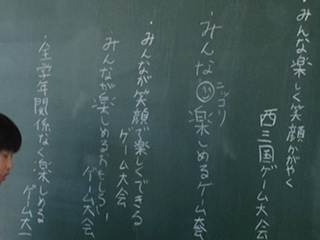 ・みんな楽しく笑顔かがやく
西三国ゲーム大会
・みんなニッコリ楽しめるゲーム大会
・みんなが笑顔で楽しくできる
ゲーム大会
・みんなが楽しめるおもしろい
ゲーム大会
・全学年関係なく楽しめる
ゲーム大